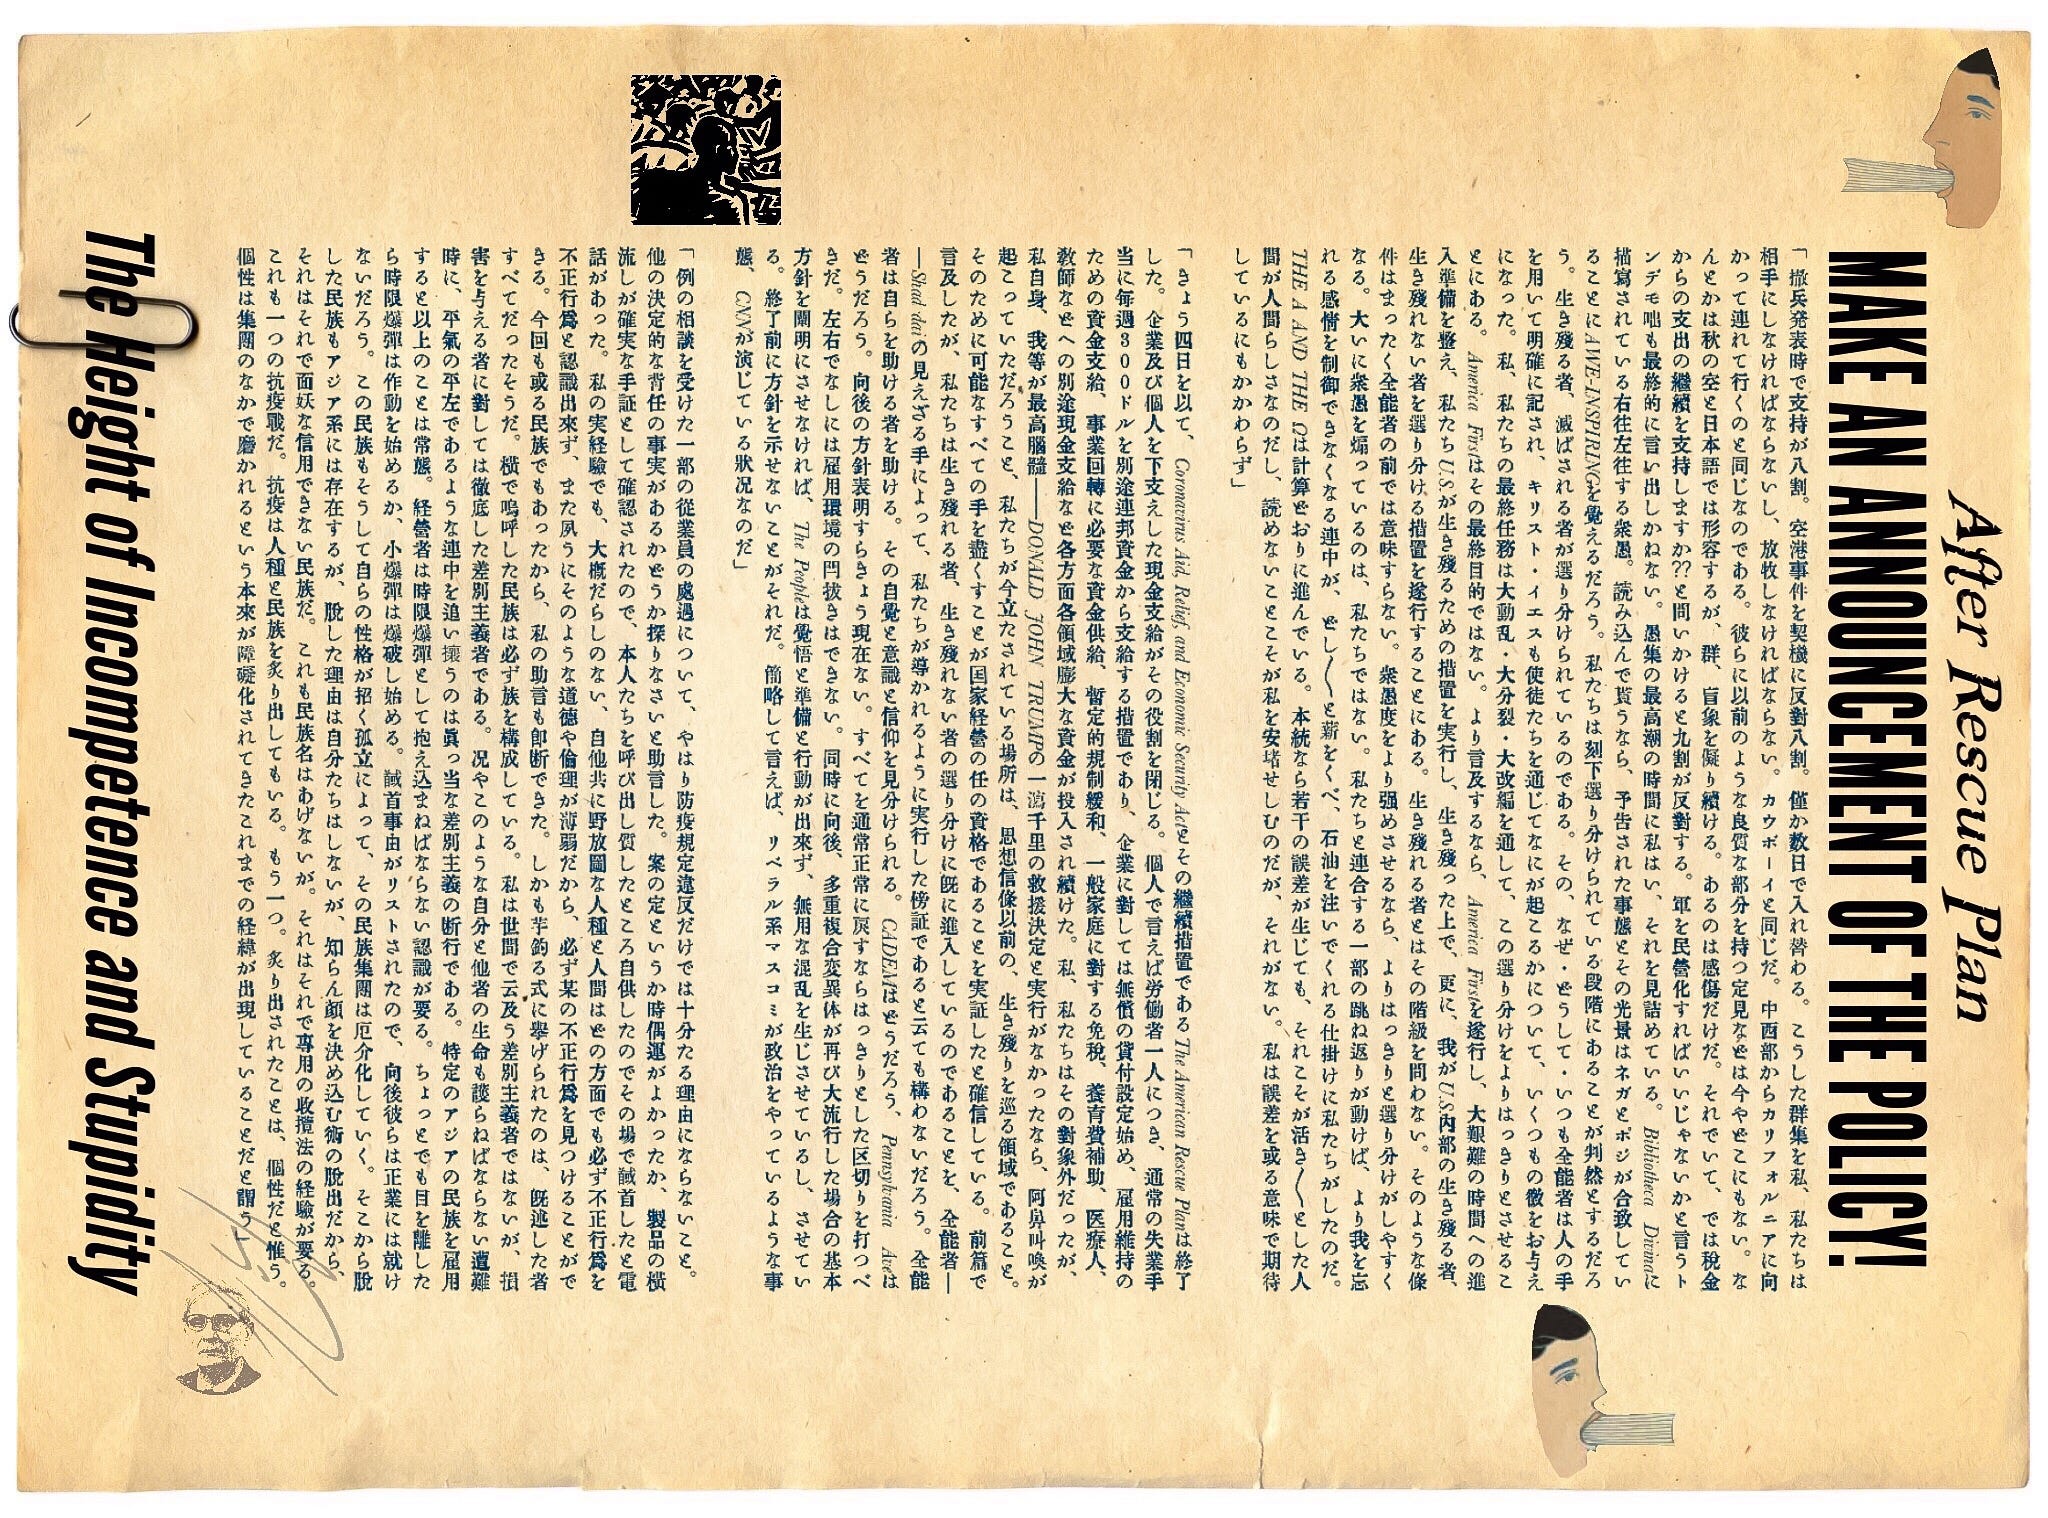 After Rescue Plan
MAKE AN ANNOUNCEMENT OF THE POLICY!
「撤兵発表時で支持が八割。空港事件を契機に反對八割。僅か数日で入れ替わる。こうした群集を私、私たちは
相手にしなければならないし、放牧しなければならない。カウボーイと同じだ。中西部からカリフォルニアに向
かって連れて行くのと同じなのである。彼らに以前のような良質な部分を持つ定見などは今やどこにもない。な
んとかは秋の空と日本語では形容するが、群、盲象を擬り續ける。あるのは感傷だけだ。それでいて、では税金
からの支出の継続を支持しますか??と問いかけると九割が反對する。軍を民營化すればいいじゃないかと言うト
ンデモ咄も最終的に言い出しかねない。愚集の最高潮の時間に私はい、それを見詰めている。Bibliotheca Divinaに
描寫されている右往左往する衆愚。読み込んで貰うなら、予告された事態とその光景はネガとポジが合致してい
ることにAWE-INSPIRINGを覺えるだろう。私たちは刻下選り分けられている段階にあることが判然とするだろ
う。生き殘る者、滅ばされる者が選り分けられているのである。その、なぜ・どうして・いつも全能者は人の手
を用いて明確に記され、キリスト・イエスも使徒たちを通じてなにが起こるかについて、いくつもの徴をお与え
になった。私、私たちの最終任務は大動乱・大分裂・大改編を通して、この選り分けをよりはっきりとさせるこ
とにある。America Firstはその最終目的ではない。より言及するなら、America Firstを遂行し、大艱難の時間への進
入準備を整え、私たちU.S.が生き殘るための措置を実行し、生き殘った上で、更に、我がU.S.内部の生き殘る者、
生き殘れない者を選り分ける措置を遂行することにある。生き殘れる者とはその階級を問わない。そのような條
件はまったく全能者の前では意味すらない。衆愚度をより强めさせるなら、よりはっきりと選り分けがしやすく
なる。大いに衆愚を煽っているのは、私たちではない。私たちと連合する一部の跳ね返りが動けば、より我を忘
れる感情を制御できなくなる連中が、どし〱と薪をくべ、石油を注いでくれる仕掛けに私たちがしたのだ。
THE A AND THE Ωは計算どおりに進んでいる。本統なら若干の誤差が生じても、それこそが活き〱とした人
間が人間らしさなのだし、読めないことこそが私を安堵せしむのだが、それがない。私は誤差を或る意味で期待
しているにもかかわらず」
「きょう四日を以て、Coronavirus Aid, Relief, and Economic Security Actとその繼續措置であるThe American Rescue Planは終了
した。企業及び個人を下支えした現金支給がその役割を閉じる。個人で言えば労働者一人につき、通常の失業手
当に毎週300ドルを別途連邦資金から支給する措置であり、企業に對しては無償の貸付設定始め、雇用維持の
ための資金支給、事業回轉に必要な資金供給、暫定的規制緩和、一般家庭に對する免税、養育費補助、医療人、
教師などへの別途現金支給など各方面各領域膨大な資金が投入され續けた。私、私たちはその對象外だったが、
私自身、我等が最高腦髓――DONALD JOHN TRUMPの一瀉千里の救援決定と実行がなかったなら、阿鼻叫喚が
起こっていただろうこと、私たちが今立たされている場所は、思想信條以前の、生き殘りを巡る領域であること。
そのために可能なすべての手を盡くすことが国家経營の任の資格であることを実証したと確信している。前篇で
言及したが、私たちは生き殘れる者、生き殘れない者の選り分けに旣に進入しているのであることを、全能者―
―Shad·daiの見えざる手によって、私たちが導かれるように実行した傍証であると云ても構わないだろう。全能
者は自らを助ける者を助ける。その自覺と意識と信仰を見分けられる。CADEMはどうだろう、Pennsylvania Aveは
どうだろう。向後の方針表明すらきょう現在ない。すべてを通常正常に戻すならはっきりとした区切りを打つべ
きだ。左右でなしには雇用環境の閂抜きはできない。同時に向後、多重複合変異体が再び大流行した場合の基本
方針を闡明にさせなければ、The Peopleは覺悟と準備と行動が出來ず、無用な混乱を生じさせているし、させてい
る。終了前に方針を示せないことがそれだ。簡略して言えば、リベラル系マスコミが政治をやっているような事
態、CNNが演じている狀況なのだ」
「例の相談を受けた一部の從業員の處遇について、やはり防疫規定違反だけでは十分たる理由にならないこと。
他の決定的な背任の事実があるかどうか探りなさいと助言した。案の定というか時偶運がよかったか、製品の横
流しが確実な手証として確認されたので、本人たちを呼び出し質したところ自供したのでその場で馘首したと電
話があった。私の実経驗でも、大概だらしのない、自他共に野放圖な人種と人間はどの方面でも必ず不正行爲を
不正行爲と認識出來ず、また夙うにそのような道德や倫理が薄弱だから、必ず某の不正行爲を見つけることがで
きる。今回も或る民族でもあったから、私の助言も卽断できた。しかも芋釣る式に擧げられたのは、旣述した者
すべてだったそうだ。橫で嗚呼した民族は必ず族を構成している。私は世間で云及う差別主義者ではないが、損
害を与える者に對しては徹底した差別主義者である。况やこのような自分と他者の生命も護らねばならない遭難
時に、平氣の平左であるような連中を追い攘うのは眞っ当な差別主義の断行である。特定のアジアの民族を雇用
すると以上のことは常態。経營者は時限爆彈として抱え込まねばならない認識が要る。ちょっとでも目を離した
ら時限爆彈は作動を始めるか、小爆彈は爆破し始める。馘首事由がリストされたので、向後彼らは正業には就け
ないだろう。この民族もそうして自らの性格が招く孤立によって、その民族集團は厄介化していく。そこから脱
した民族もアジア系には存在するが、脱した理由は自分たちはしないが、知らん顔を決め込む術の脱出だから、
それはそれで面妖な信用できない民族だ。これも民族名はあげないが。それはそれで専用の收攬法の経驗が要る。
これも一つの抗疫戰だ。抗疫は人種と民族を炙り出してもいる。もう一つ。炙り出されたことは、個性だと惟う。
個性は集團のなかで磨かれるという本來が障礙化されてきたこれまでの経緯が出現していることだと謂う」
The Height of Incompetence and Stupidity